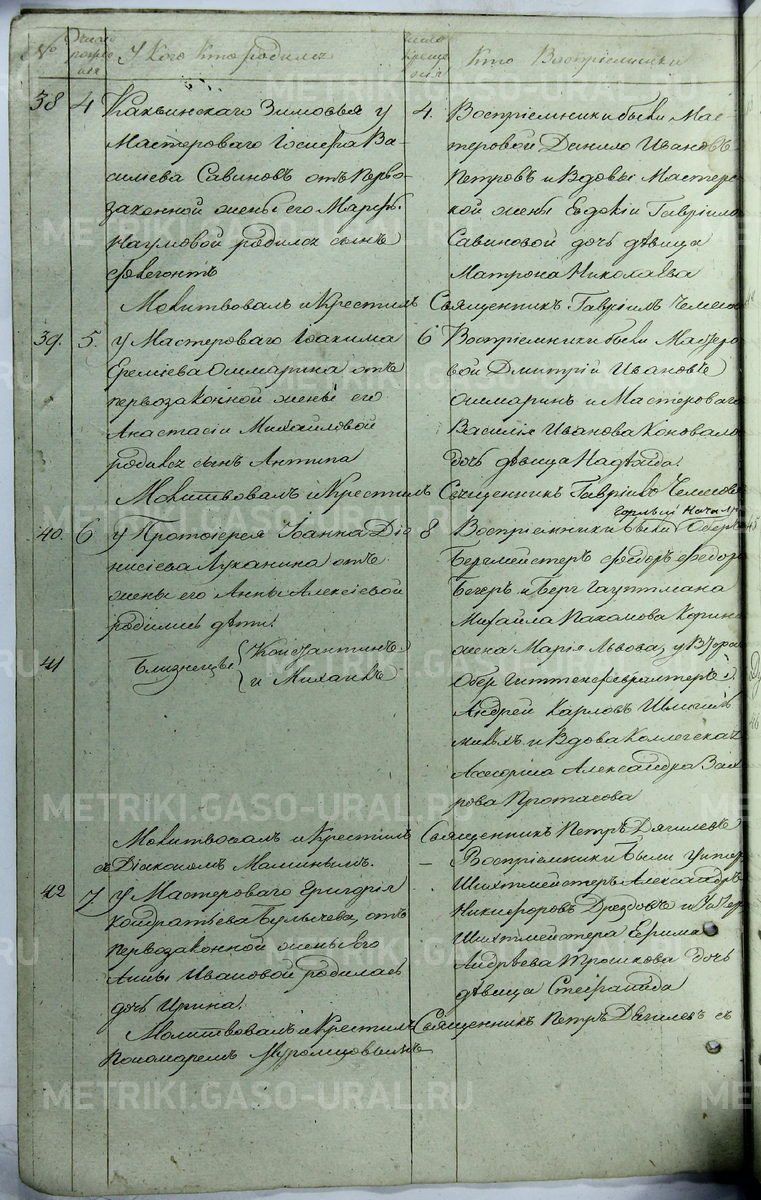 № Число рожденія У Кого Кто родился Число крещенія Кто Воспріемники
38 4 Каквинскаго Зимовья у
Мастероваго Іосифа Ва-
сильева Савиновъ отъ перво-
законной жены его Марѳы
Наумовой родился сынъ
Флегонтъ
4. Воспріемники были Мас-
теровой Данило Ивановъ
Петровъ и Вдовы Мастерс-
кой жены Евдокіи Гаврило
Савиновой дочь дѣвица
Матрона Николаева
Молитвовалъ и Крестилъ Священникъ Гавріилъ
39. 5. У Мастероваго Іоакима
Еремѣева Ошмарина отъ
первозаконной жены его
Анастасіи Михайловой
родился сынъ Антипа
6 Воспріемники были Мастеро
вой Дмитрій Ивановъ
Ошмаринъ и Мастероваго
Василія Иванова Коновало
дочь дѣвица Надежда.
Молитвовалъ и Крестилъ Священникъ Гавріилъ
40. 6 У Протоіерея Іоанна Діо
нисіева Луканина отъ
жены его Анны Алексіевой
родились дѣти:
41 Близнецы Константинъ
и Михаилъ
8 Воспріемники были Горный Начал Оберъ
Бергмейстеръ Ѳедоръ Ѳедоро
Бегеръ и Берг Гауптмана
Михайла Пахомова
жена Марія Львова, у Втораго
Обер Гиттенфервалтеръ
Андрей Карловъ
и Вдова Коллегская
Асесорша Александра Зах
рова Протасова
Молитвовалъ и Крестилъ Священникъ Петръ Дягилевъ
съ Діакономъ Маминымъ.
42 7 У Мастероваго Григорія
Кондратьева Булычева, отъ
первозаконной жены его
Анны Ивановой родилась
дочь Ирина.
— Воспріемники были Унтер
Шихтмейстеръ Александръ
Никифоровъ Дроздовъ и Унтер
Шихтмейстера Ефима
Андрѣева Трошкова дочь
дѣвица Стефанида
Молитвовалъ и Крестилъ Священникъ Петръ Дягилевъ съ
Пономаремъ
METRIKI.GASO-URAL.RU